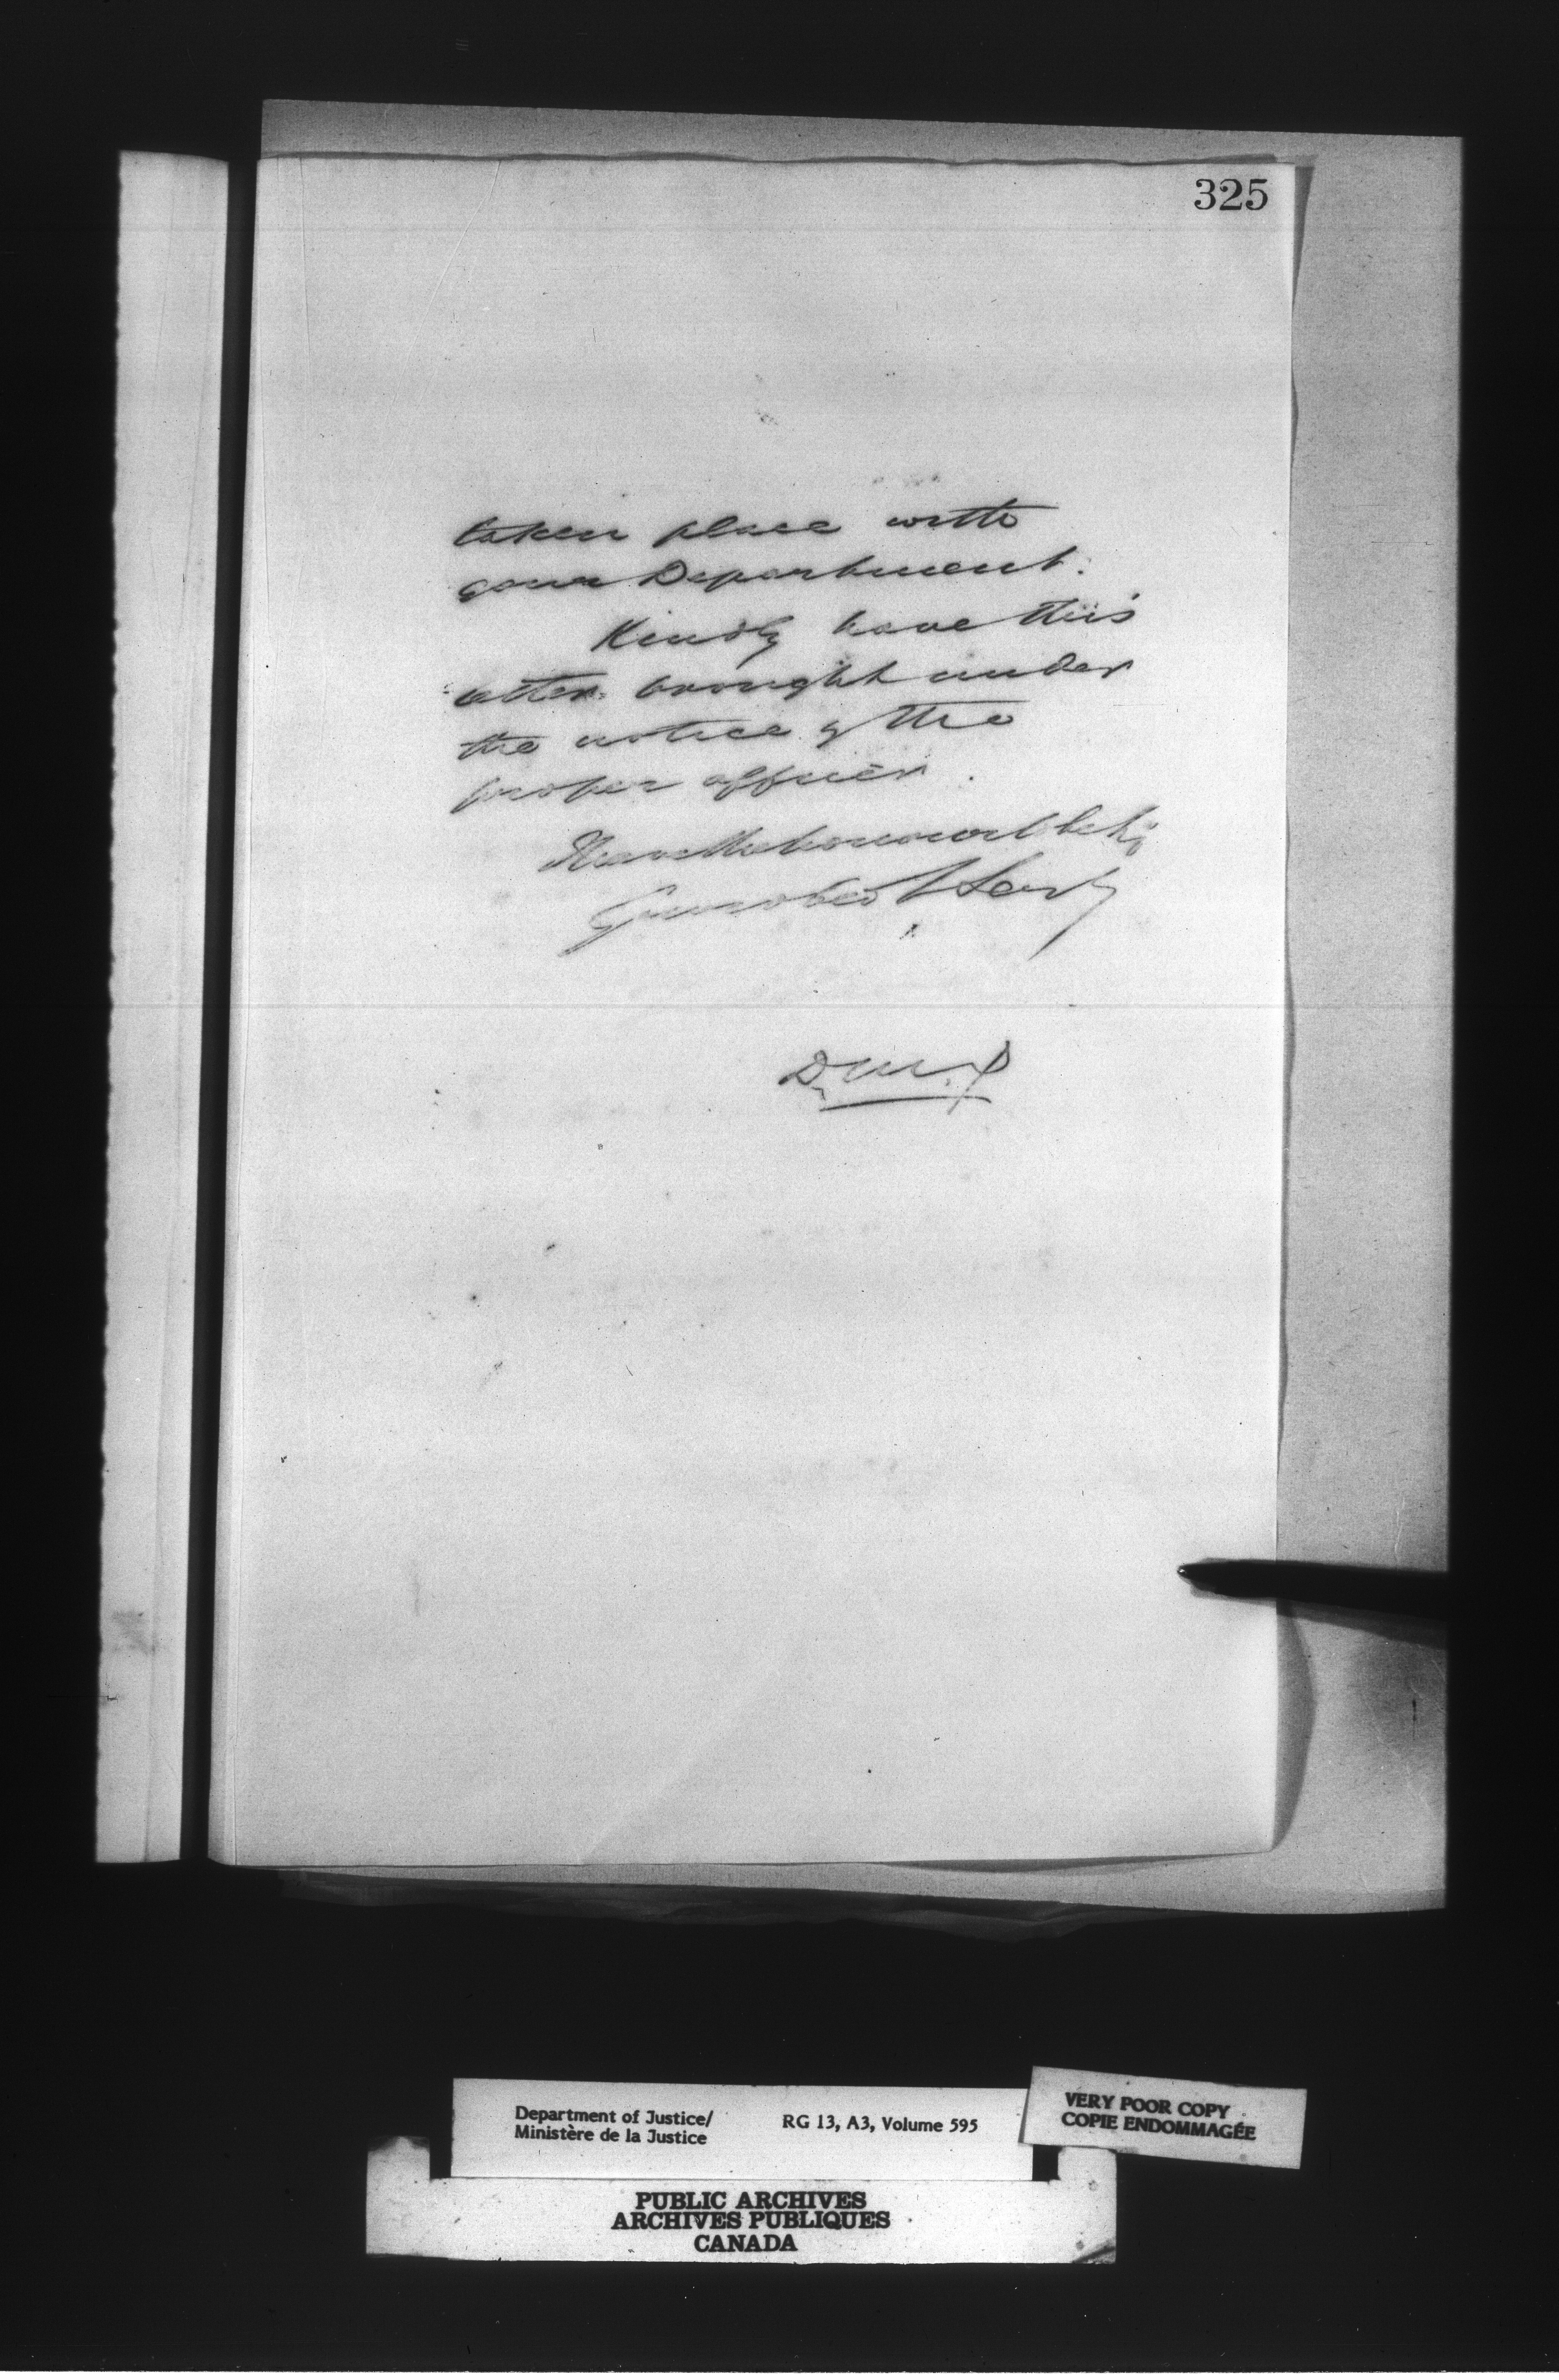 325
taken place with
your Department.
Kindly have this
letter brought under
the notice of the
proper officer.
I have the honour to be Sir
Your obed Servt
D.M.J
Department of Justice/
Ministère de la Justice
RG 13, A3, Volume 595
VERY POOR COPY
COPIE ENDOMMAGÉE
PUBLIC ARCHIVES
ARCHIVES PUBLIQUES
CANADA